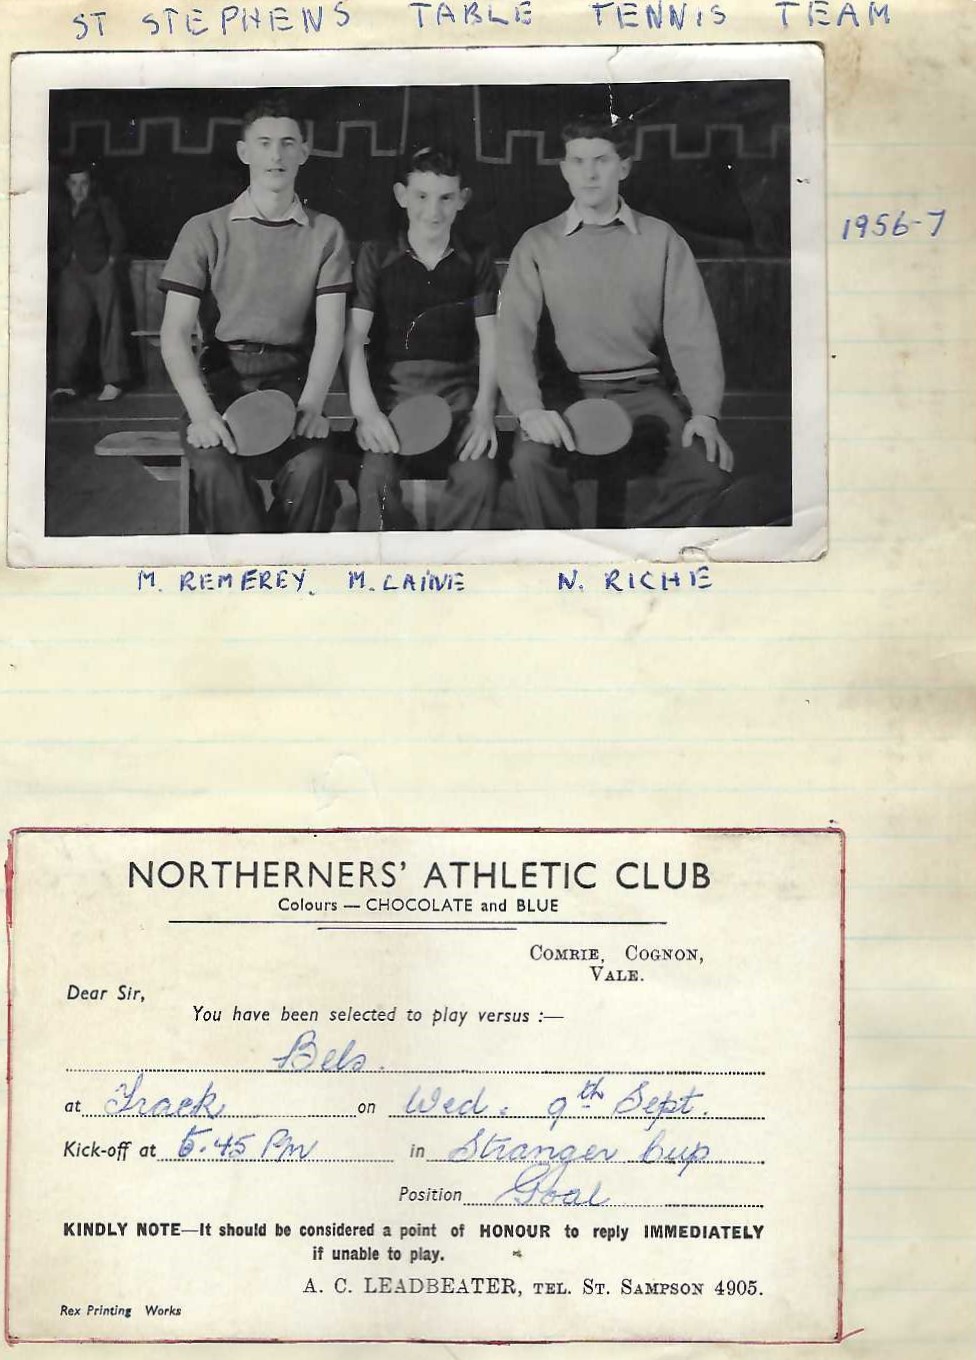 ST STEPHENS TABLE TENNIS TEAM
1956-7
M. REMFREY. M. LAINE N. RICHE
NORTHERNERS' ATHLETIC CLUB
Colours — CHOCOLATE and BLUE
COMRIE, COGNON,
VALE.
Dear Sir,
You have been selected to play versus :—
Bels.
at Track on Wed. 9th Sept.
Kick-off at 5.45 Pm in Stranger Cup
Position Goal
KINDLY NOTE—It should be considered a point of HONOUR to reply IMMEDIATELY
if unable to play.
A. C. LEADBEATER, TEL. ST. SAMPSON 4905.
Rex Printing Works